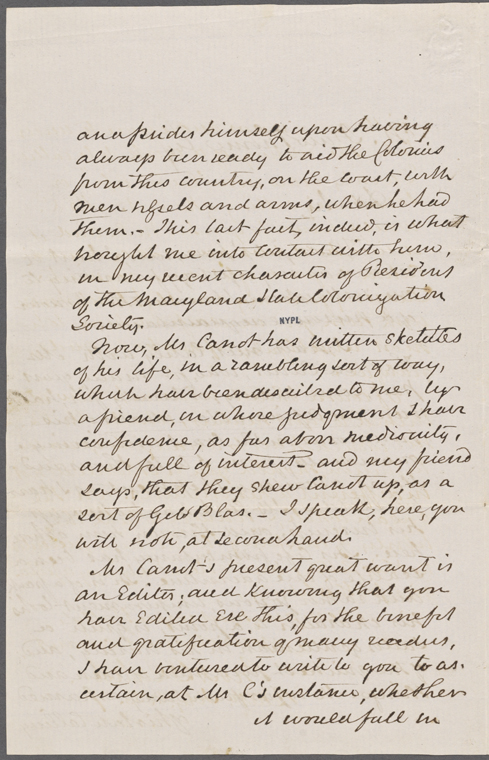 and prides himself upon having
always been ready to aid the Colonies
from this country, on the coast, with
men vessels and arms, when he had
them. - This last fact, indeed, is what
brought me into contact with him,
in my recent character of President
of the Maryland State Colonization
Society.
NYPL
Now, Mr Canot has written sketches
of his life, in a rambling sort of way,
which have been described to me, by
a friend, in whose judgment I have
confidence, as far above mediocrity,
and full of interest - and my friend
says, that they shew Canot up, as a
sort of Gil Blas. - I speak, here, you
will note, at second hand.
Mr Canot's present great want is
an Editor; and knowing that you
have Edited Ere this, for the benefit
and gratification of many readers,
I have ventured to write to you to as-
certain, at Mr C's instance, whether
it would fall in